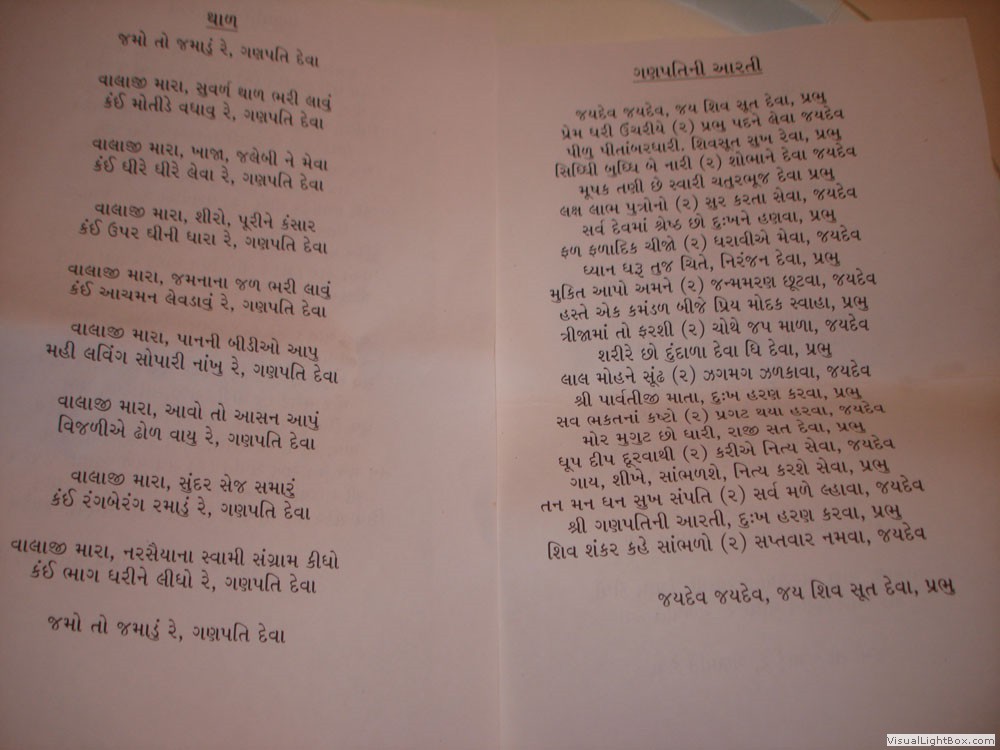 થાળ
જમો તો જમાડું રે, ગણપતિ દેવા
વાલાજી મારા, સુવર્ણ થાળ ભરી લાવું
કંઈ મોતીડે વધાવુ રે, ગણપતિ દેવા
વાલાજી મારા, ખાજા, જલેબી ને મેવા
કંઈ ધીરે ધીરે લેવા રે, ગણપતિ દેવા
વાલાજી મારા, શીરો, પૂરીને કંસાર
કંઈ ઉપર ઘીની ધારા રે, ગણપતિ દેવા
વાલાજી મારા, જમનાના જળ ભરી લાવું
કંઈ આચમન લેવડાવું રે, ગણપતિ દેવા
વાલાજી મારા, પાનની બીડીઓ આપુ
મહી લવિંગ સોપારી નાંખુ રે, ગણપતિ દેવા
વાલાજી મારા, આવો તો આસન આપું
વિજળીએ ઢોળ વાયુ રે, ગણપતિ દેવા
વાલાજી મારા, સુંદર સેજ સમારું
કંઈ રંગબેરંગ રમાડું રે, ગણપતિ દેવા
વાલાજી મારા, નરસૈયાના સ્વામી સંગ્રામ કીધો
કંઈ ભાગ ધરીને લીધો રે, ગણપતિ દેવા
જમો તો જમાડું રે, ગણપતિ દેવા
ગણપતિની આરતી
જયદેવ જયદેવ, જય શિવ સુત દેવા, પ્રભુ
પ્રેમ ધરી ઉચરીયે (૨) પ્રભુ પદને લેવા જયદેવ
પીળુ પીતાંબરધારી. શિવસૂત સુખ રેવા, પ્રભુ
સિધ્ધી બુધ્ધિ બે નારી (૨) શોભાને દેવા જયદેવ
મૂષક તણી છે સ્વારી ચતુરભૂજ દેવા પ્રભુ
લક્ષ લાભ પુત્રોનો (૨) સુર કરતા સેવા, જયદેવ
સર્વ દેવમાં શ્રેષ્ઠ છો દુઃખને હણવા, પ્રભુ
ફળ ફળાદિક ચીજો (૨) ધરાવીએ મેવા, જયદેવ
ધ્યાન ધરૂ તુજ ચિતે, નિરંજન દેવા, પ્રભુ
મુકિત આપો અમને (૨) જન્મમરણ છૂટવા, જયદેવ
હસ્તે એક કમંડળ બીજે પ્રિય મોદક સ્વાહા, પ્રભુ
ત્રીજામાં તો ફરશી (૨) ચોથે જપ માળા, જયદેવ
શરીરે છો દુંદાળા દેવા ધિ દેવા, પ્રભુ
લાલ મોહને સૂંઢ (૨) ઝગમગ ઝળકાવા, જયદેવ
શ્રી પાર્વતીજી માતા, દુઃખ હરણ કરવા, પ્રભુ
સવ ભકતનાં કષ્ટો (૨) પ્રગટ થયા હરવા, જયદેવ
મોર મુગુટ છો ધારી, રાજી સત દેવા, પ્રભુ
ધૂપ દીપ દૂરવાથી (૨) કરીએ નિત્ય સેવા, જયદેવ
ગાય, શીખે, સાંભળશે, નિત્ય કરશે સેવા, પ્રભુ
તન મન ધન સુખ સંપતિ (૨) સર્વ મળે લ્હાવા, જયદેવ
શ્રી ગણપતિની આરતી, દુઃખ હરણ કરવા, પ્રભુ
શિવ શંકર કહે સાંભળો (૨) સપ્તવાર નમવા, જયદેવ
જયદેવ જયદેવ, જય શિવ સૂત દેવા, પ્રભુ
VisualLightBox.com